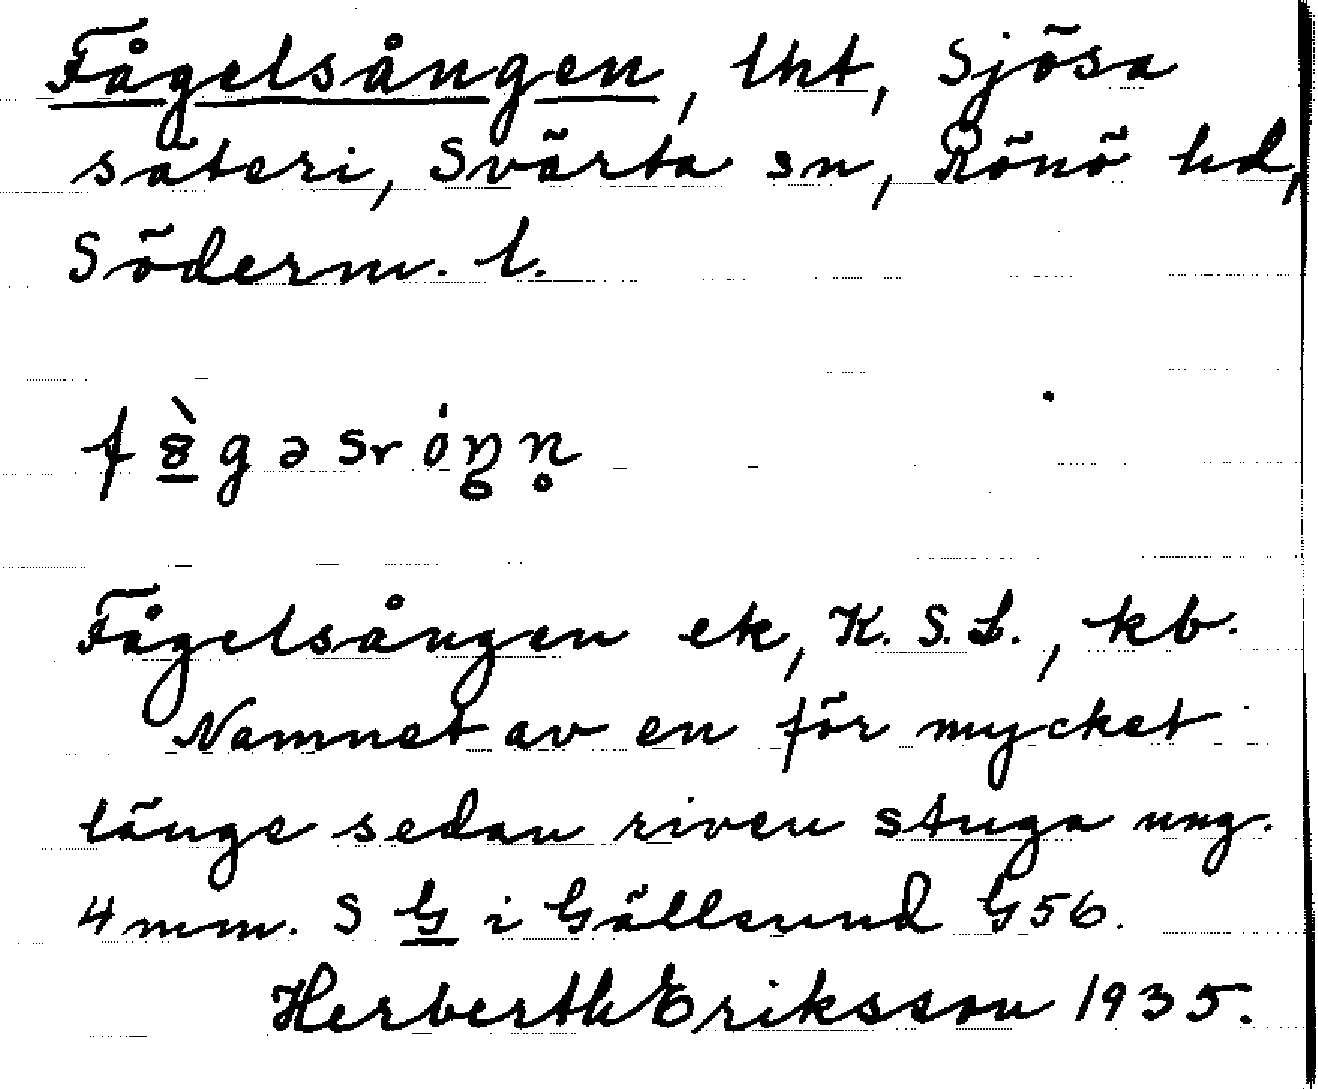 Fågelsången, lht, Sjösa
säteri, Svärta sn, Rönö hd,
Söderm. l.
f8̲̀gəsróŋn̥
Fågelsången ek, K. S. L., kb.
Namnet av en för mycket
länge sedan riven stuga ung.
4 mm. S G i Gällsund G56.
Herberth Eriksson 1935.